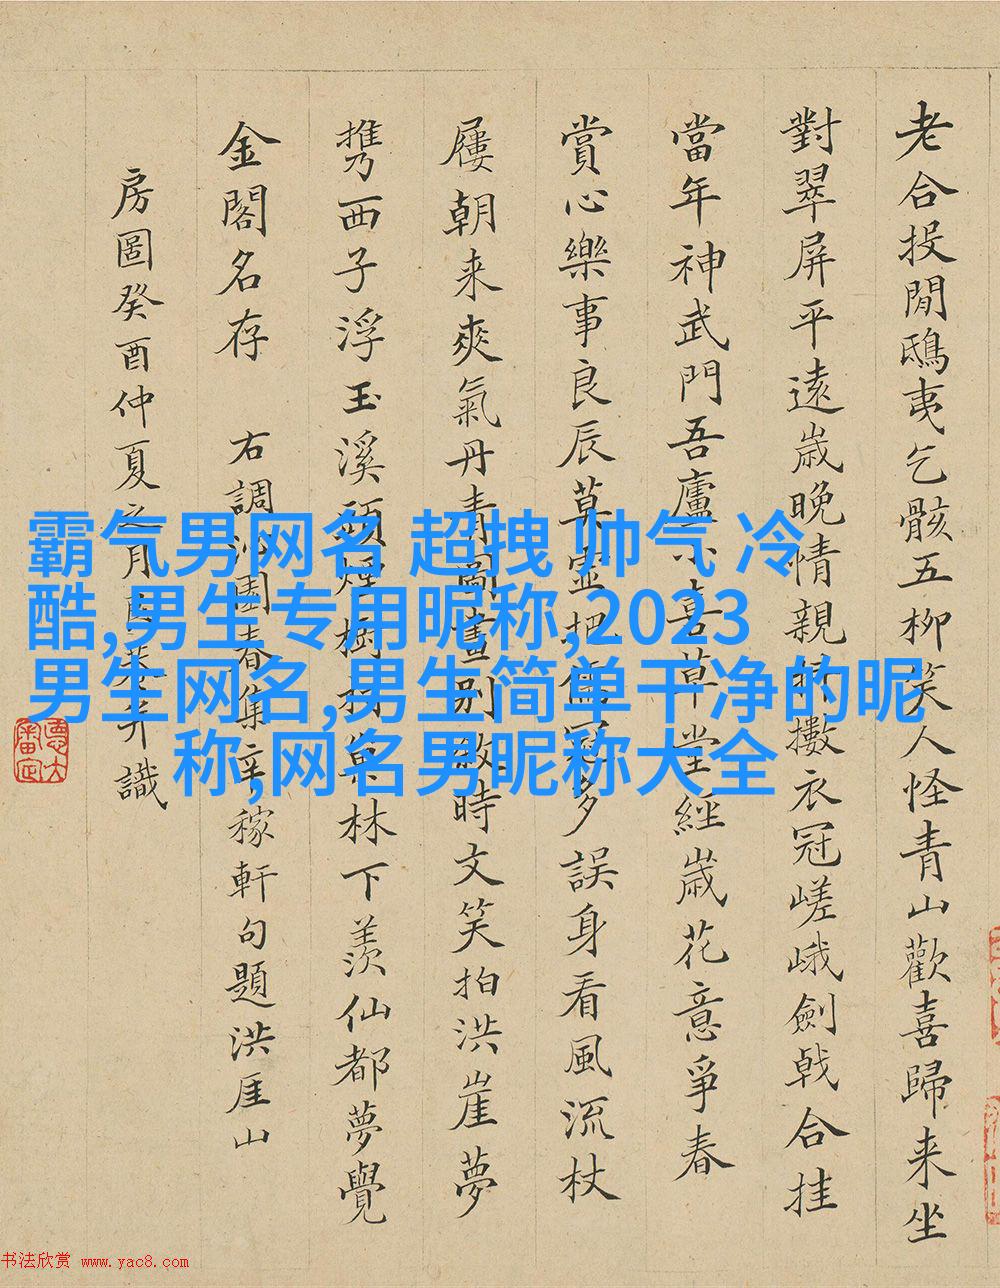 老合投閒鴟夷乞骸五柳笑人怪青山歡喜歸来坐
對翠屏平遠歳晚情親擻衣冠嵯峨劍戟合挂
當年神武門吾廬小喜草堂經歳花意爭春
賞心樂事良辰莫把儒冠多誤身看風流杖
屨朝来爽氣丹青圖畫別做時文笑拍洪崖夢
携西子浮玉溪頭煙樹林下羨仙都夢覺
金閣名存 右調沁園春集辛稼軒句題洪厓山
房圖癸酉仲夏之月識
霸气男网名 超拽 帅气 冷
酷,男生专用昵称,2023
男生网名,男生简单干净的昵
称,网名男昵称大全
书法欣赏 www.yac8.com